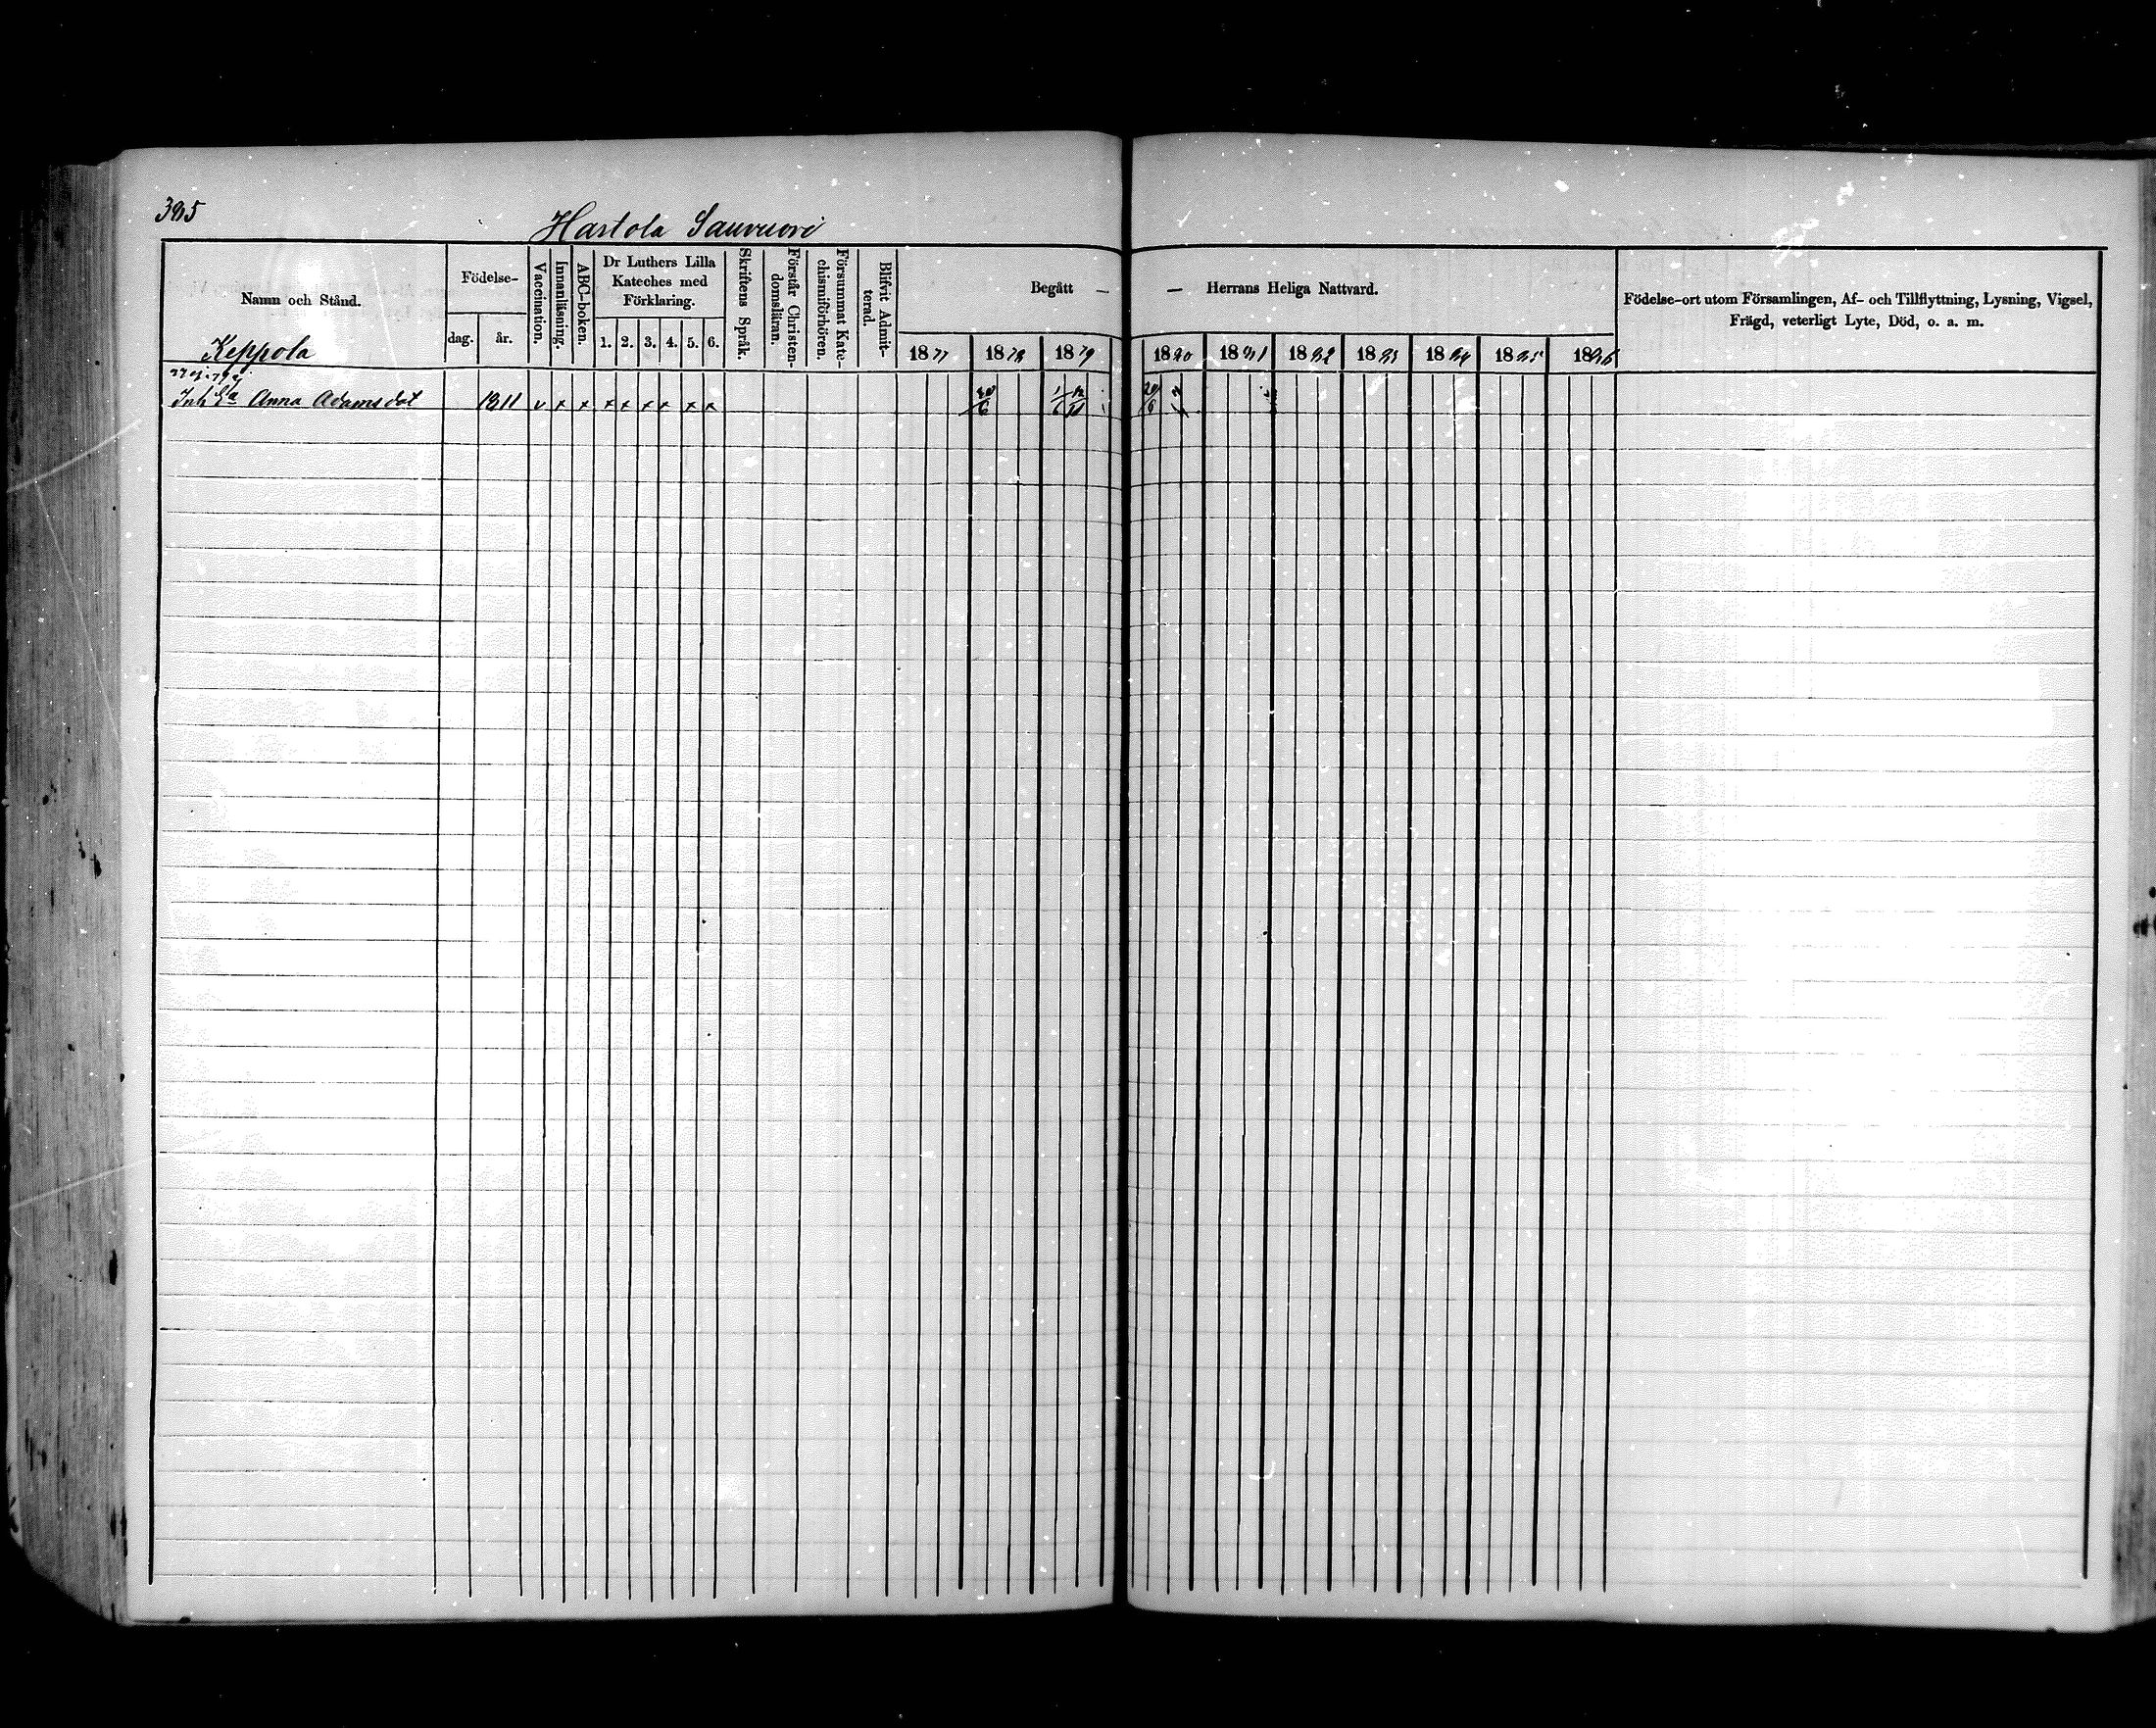 385
Hartola Sauvuori
Namn och Stånd.
Keppola
Födelse-
dag.
år.
Vaccination.
Innanläsning.
ABC-boken.
Dr Luthers Lilla
Kateches med
Förklaring.
1. 2. 3. 4. 5. 6.
Skriftens Språk.
Förstår Christen-
domsläran.
Försummat Kate-
chismiförhören.
Blifvit Admit-
terad.
Begått — — Herrans Heliga Nattvard.
1877 1878 1879 1880 1881 1882 1883 1884 1885 1886
Födelse-ort utom Församlingen, Af- och Tillflyttning, Lysning, Vigsel,
Frägd, veterligt Lyte, Död, o. a. m.
Inh Ea Anna Adamsdot 1811 v x x x x x x x x